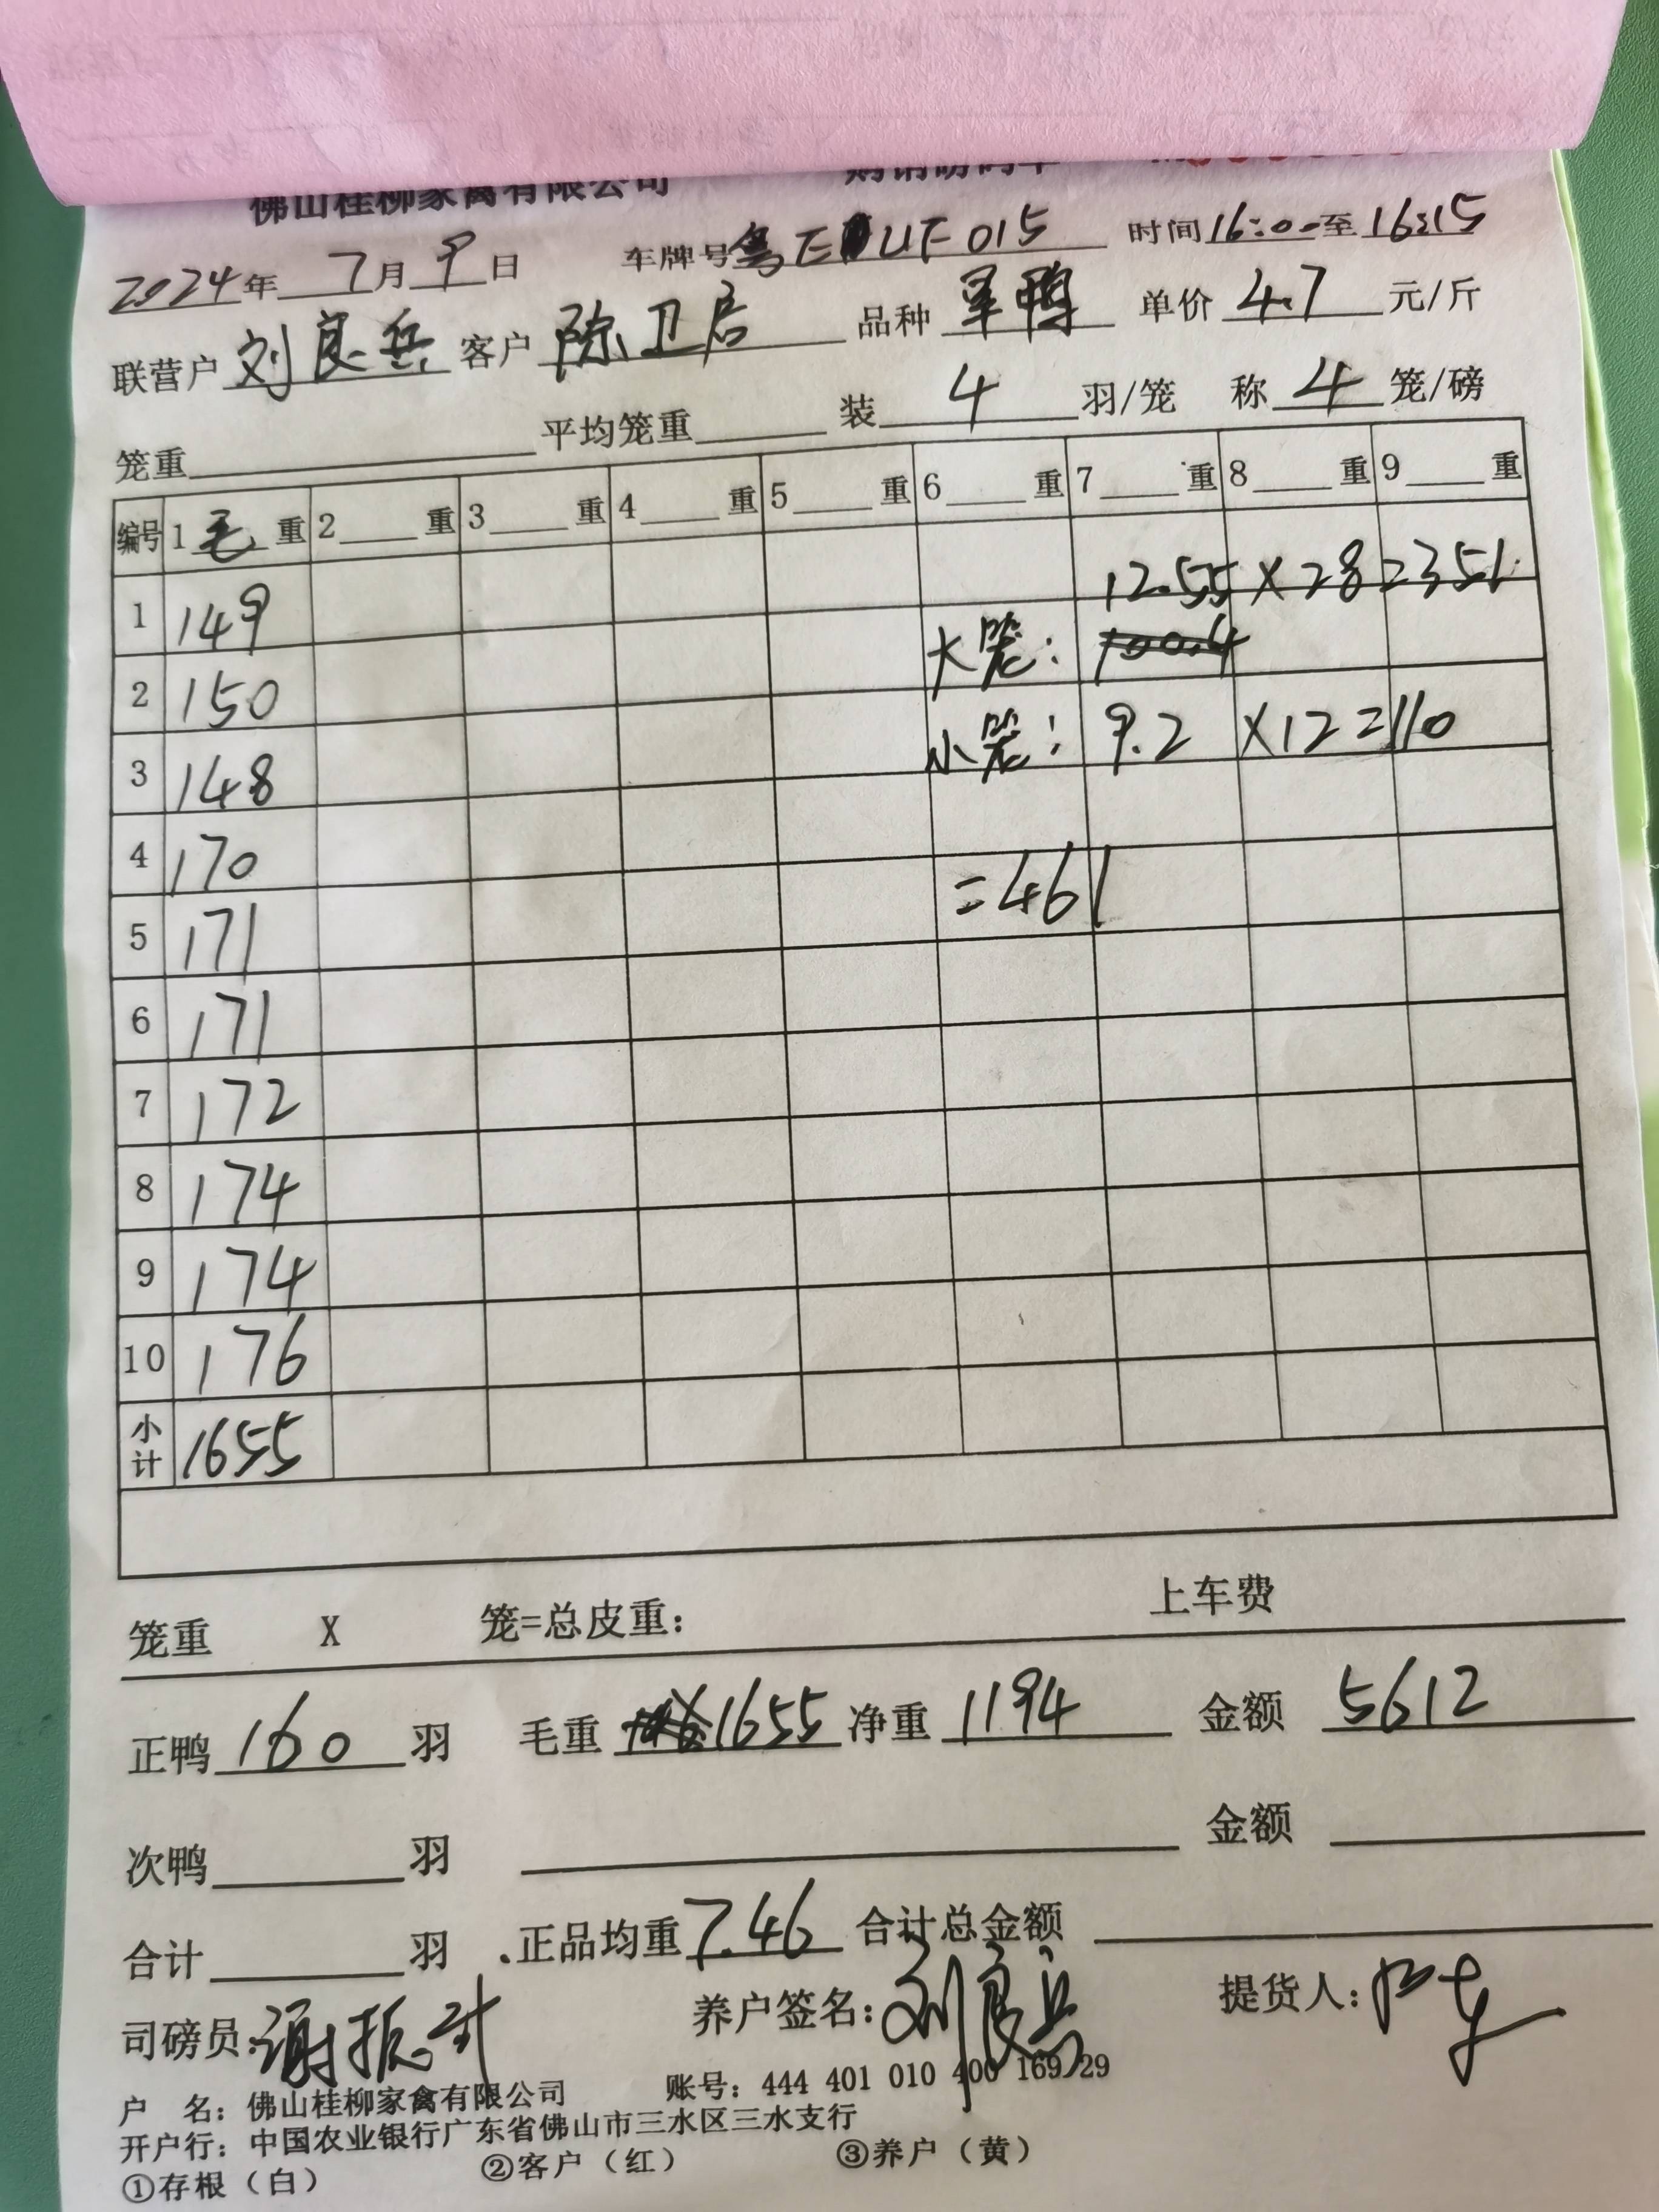 佛山桂柳家禽有限公司 购销磅码单
2024年 7月 9日 车牌号 粤E UF015 时间 16:00 至 16:15
联营户 刘良兵 客户 陈卫启 品种 单鸭 单价 4.7 元/斤
笼重 平均笼重 装 4 羽/笼 称 4 笼/磅
编号 1 毛 重 2 重 3 重 4 重 5 重 6 重 7 重 8 重 9 重
12.55 X 28 = 351
1 149
大笼: 100.4
2 150
小笼: 9.2 X 12 = 110
3 148
4 170
=461
5 171
6 171
7 172
8 174
9 174
10 176
小计 1655
笼重 X 笼=总皮重: 上车费
正鸭 160 羽 毛重 1655 净重 1194 金额 5612
次鸭 羽 金额
合计 羽 正品均重 7.46 合计总金额
司磅员: 谢振 养户签名: 刘良兵 提货人:
户 名: 佛山桂柳家禽有限公司 账号: 444 401 010 400 169 29
开户行: 中国农业银行广东省佛山市三水区三水支行
①存根(白) ②客户(红) ③养户(黄)